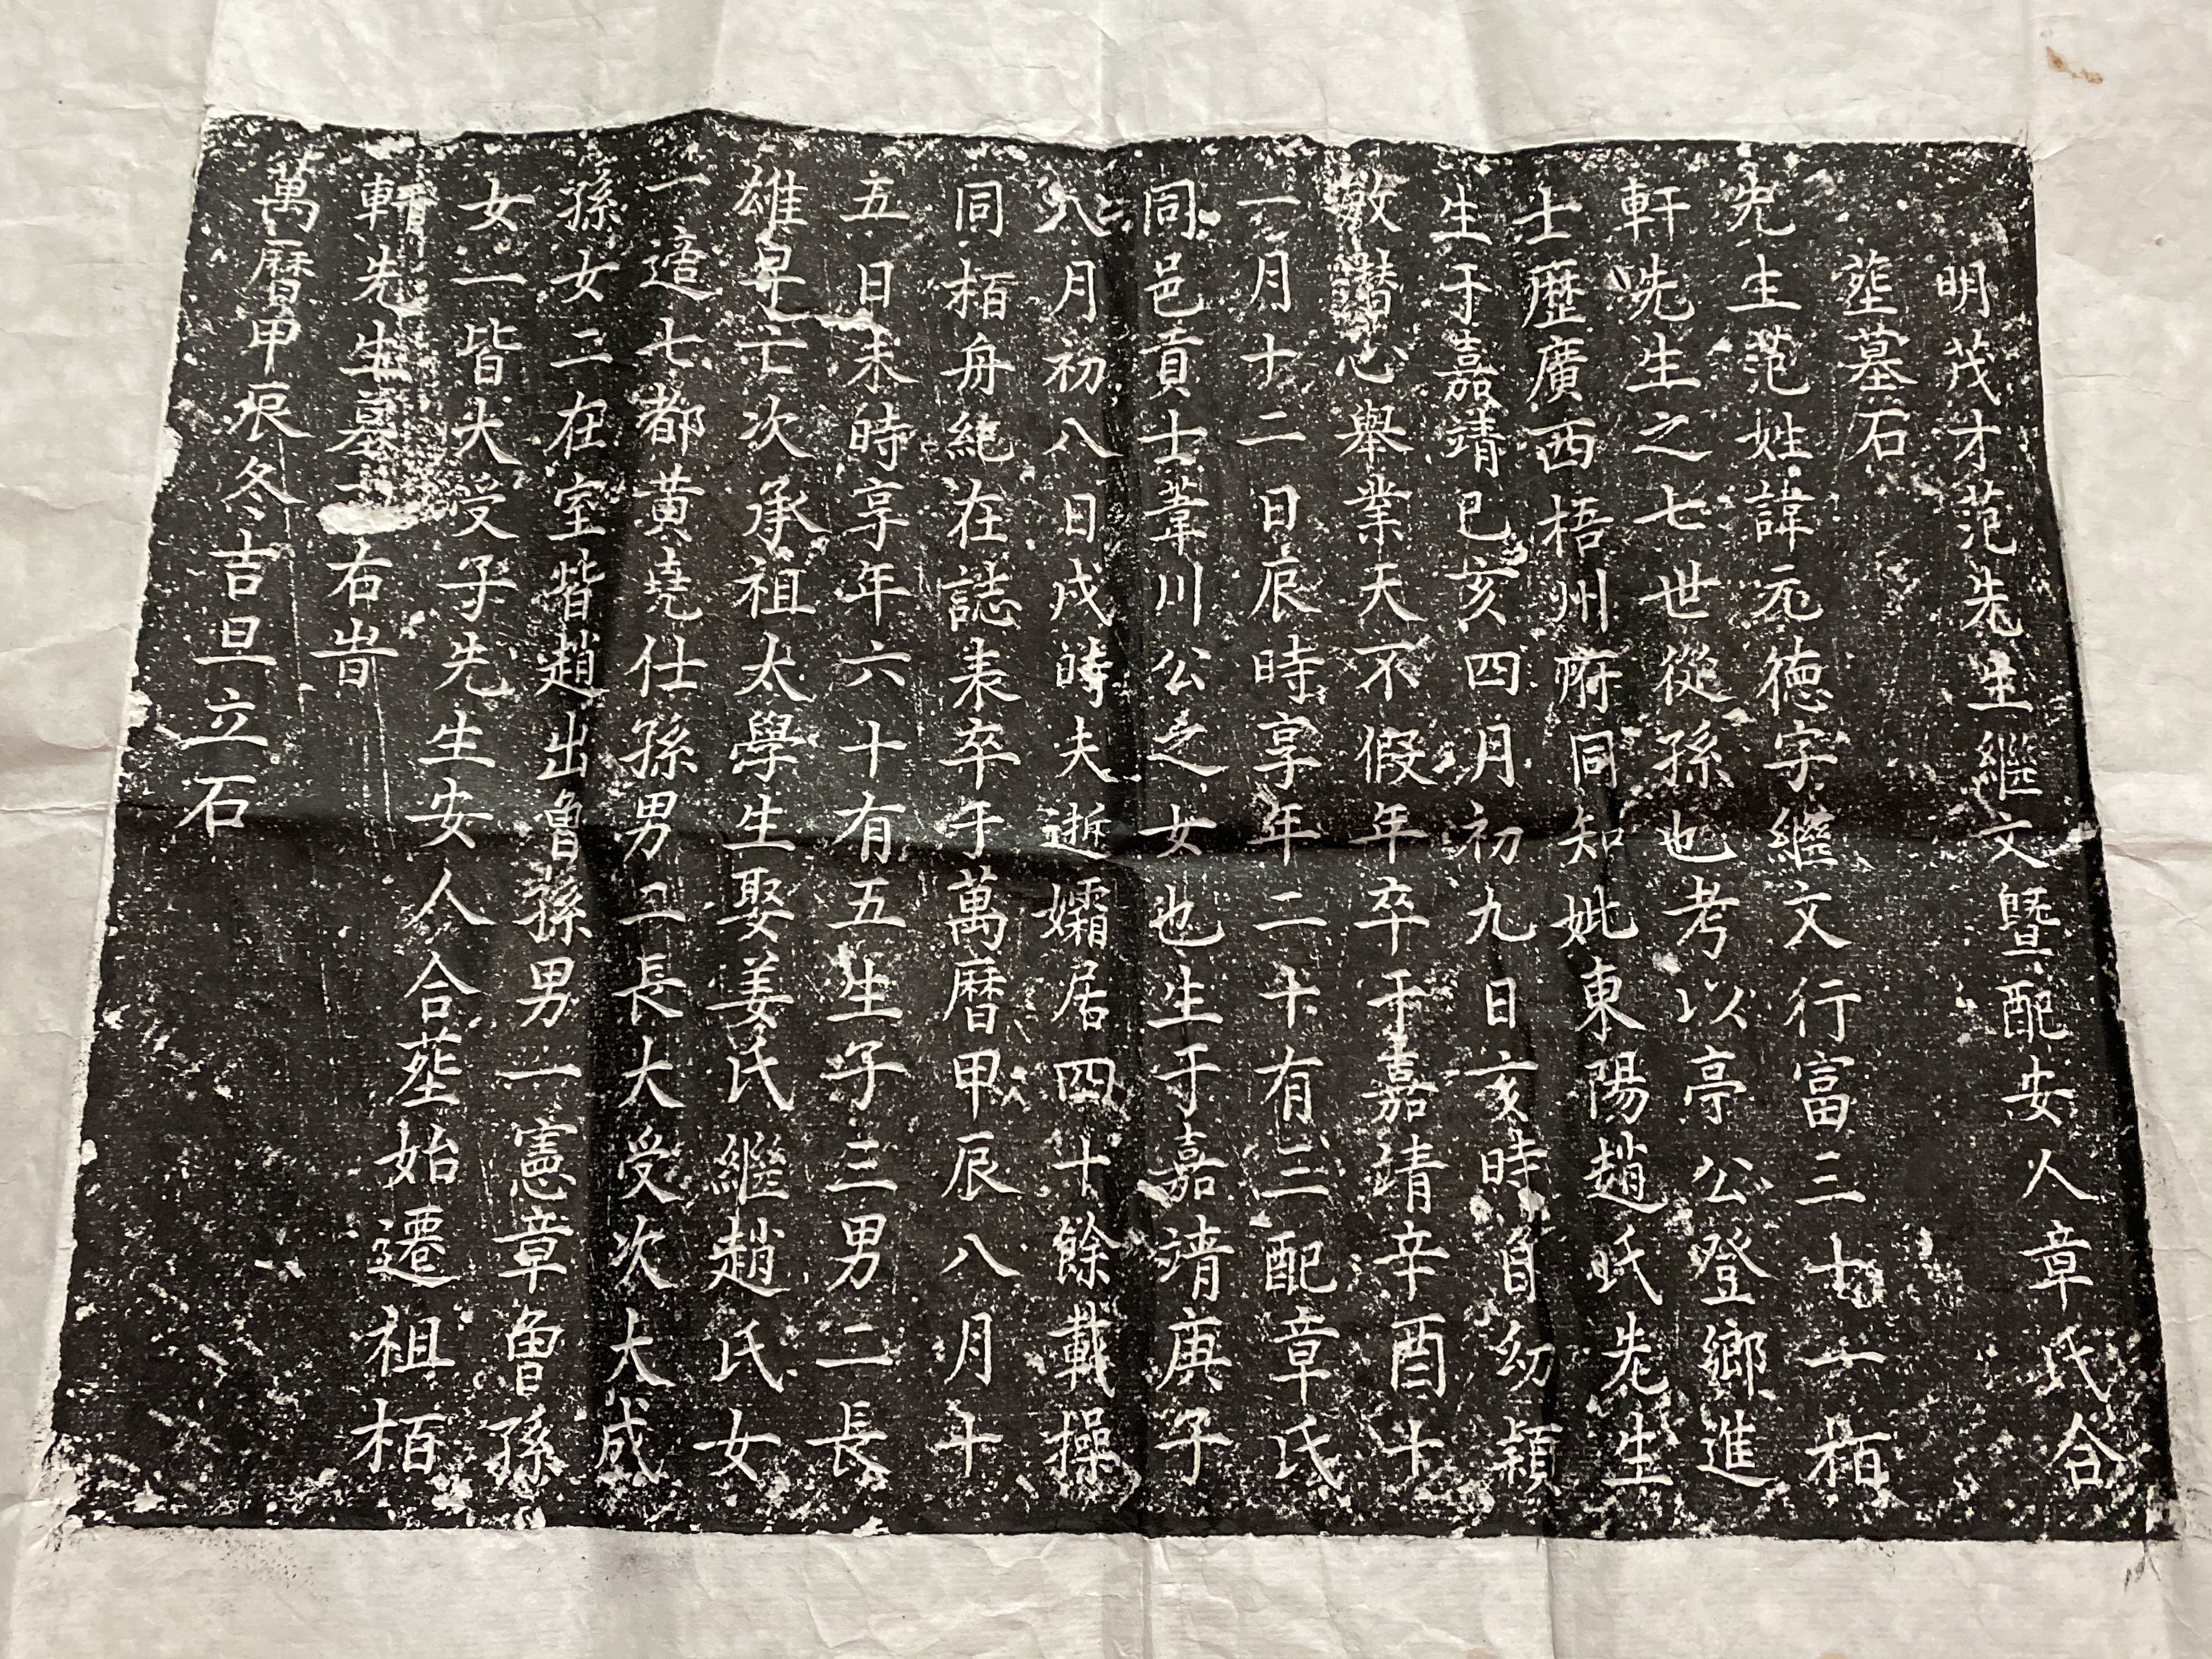 明茂才范先生繼文暨配安人章氏合
塟墓石
先生范姓諱元德字繼文行富三七一栢
軒先生之七世從孫也考以亭公登鄉進
士歷廣西梧州府同知妣東陽趙氏先生
生于嘉靖己亥四月初九日亥時自幼穎
敏潛心舉業天不假年卒于嘉靖辛酉十
一月十二日辰時享年二十有三配章氏
同邑貢士葦川公之女也生于嘉靖庚子
八月初八日戌時夫逝孀居四十餘載操
同栢舟純在誌表卒于萬曆甲辰八月十
五日未時享年六十有五生子三男二長
雄早亡次承祖太學生娶姜氏繼趙氏女
一適七都黃堯仕孫男二長大受次大咸
孫女二在室皆趙出曾孫男一憲章曾孫
女一皆大受子先生安人合塟始遷祖栢
軒先生墓右旹
萬曆甲辰冬吉旦立石